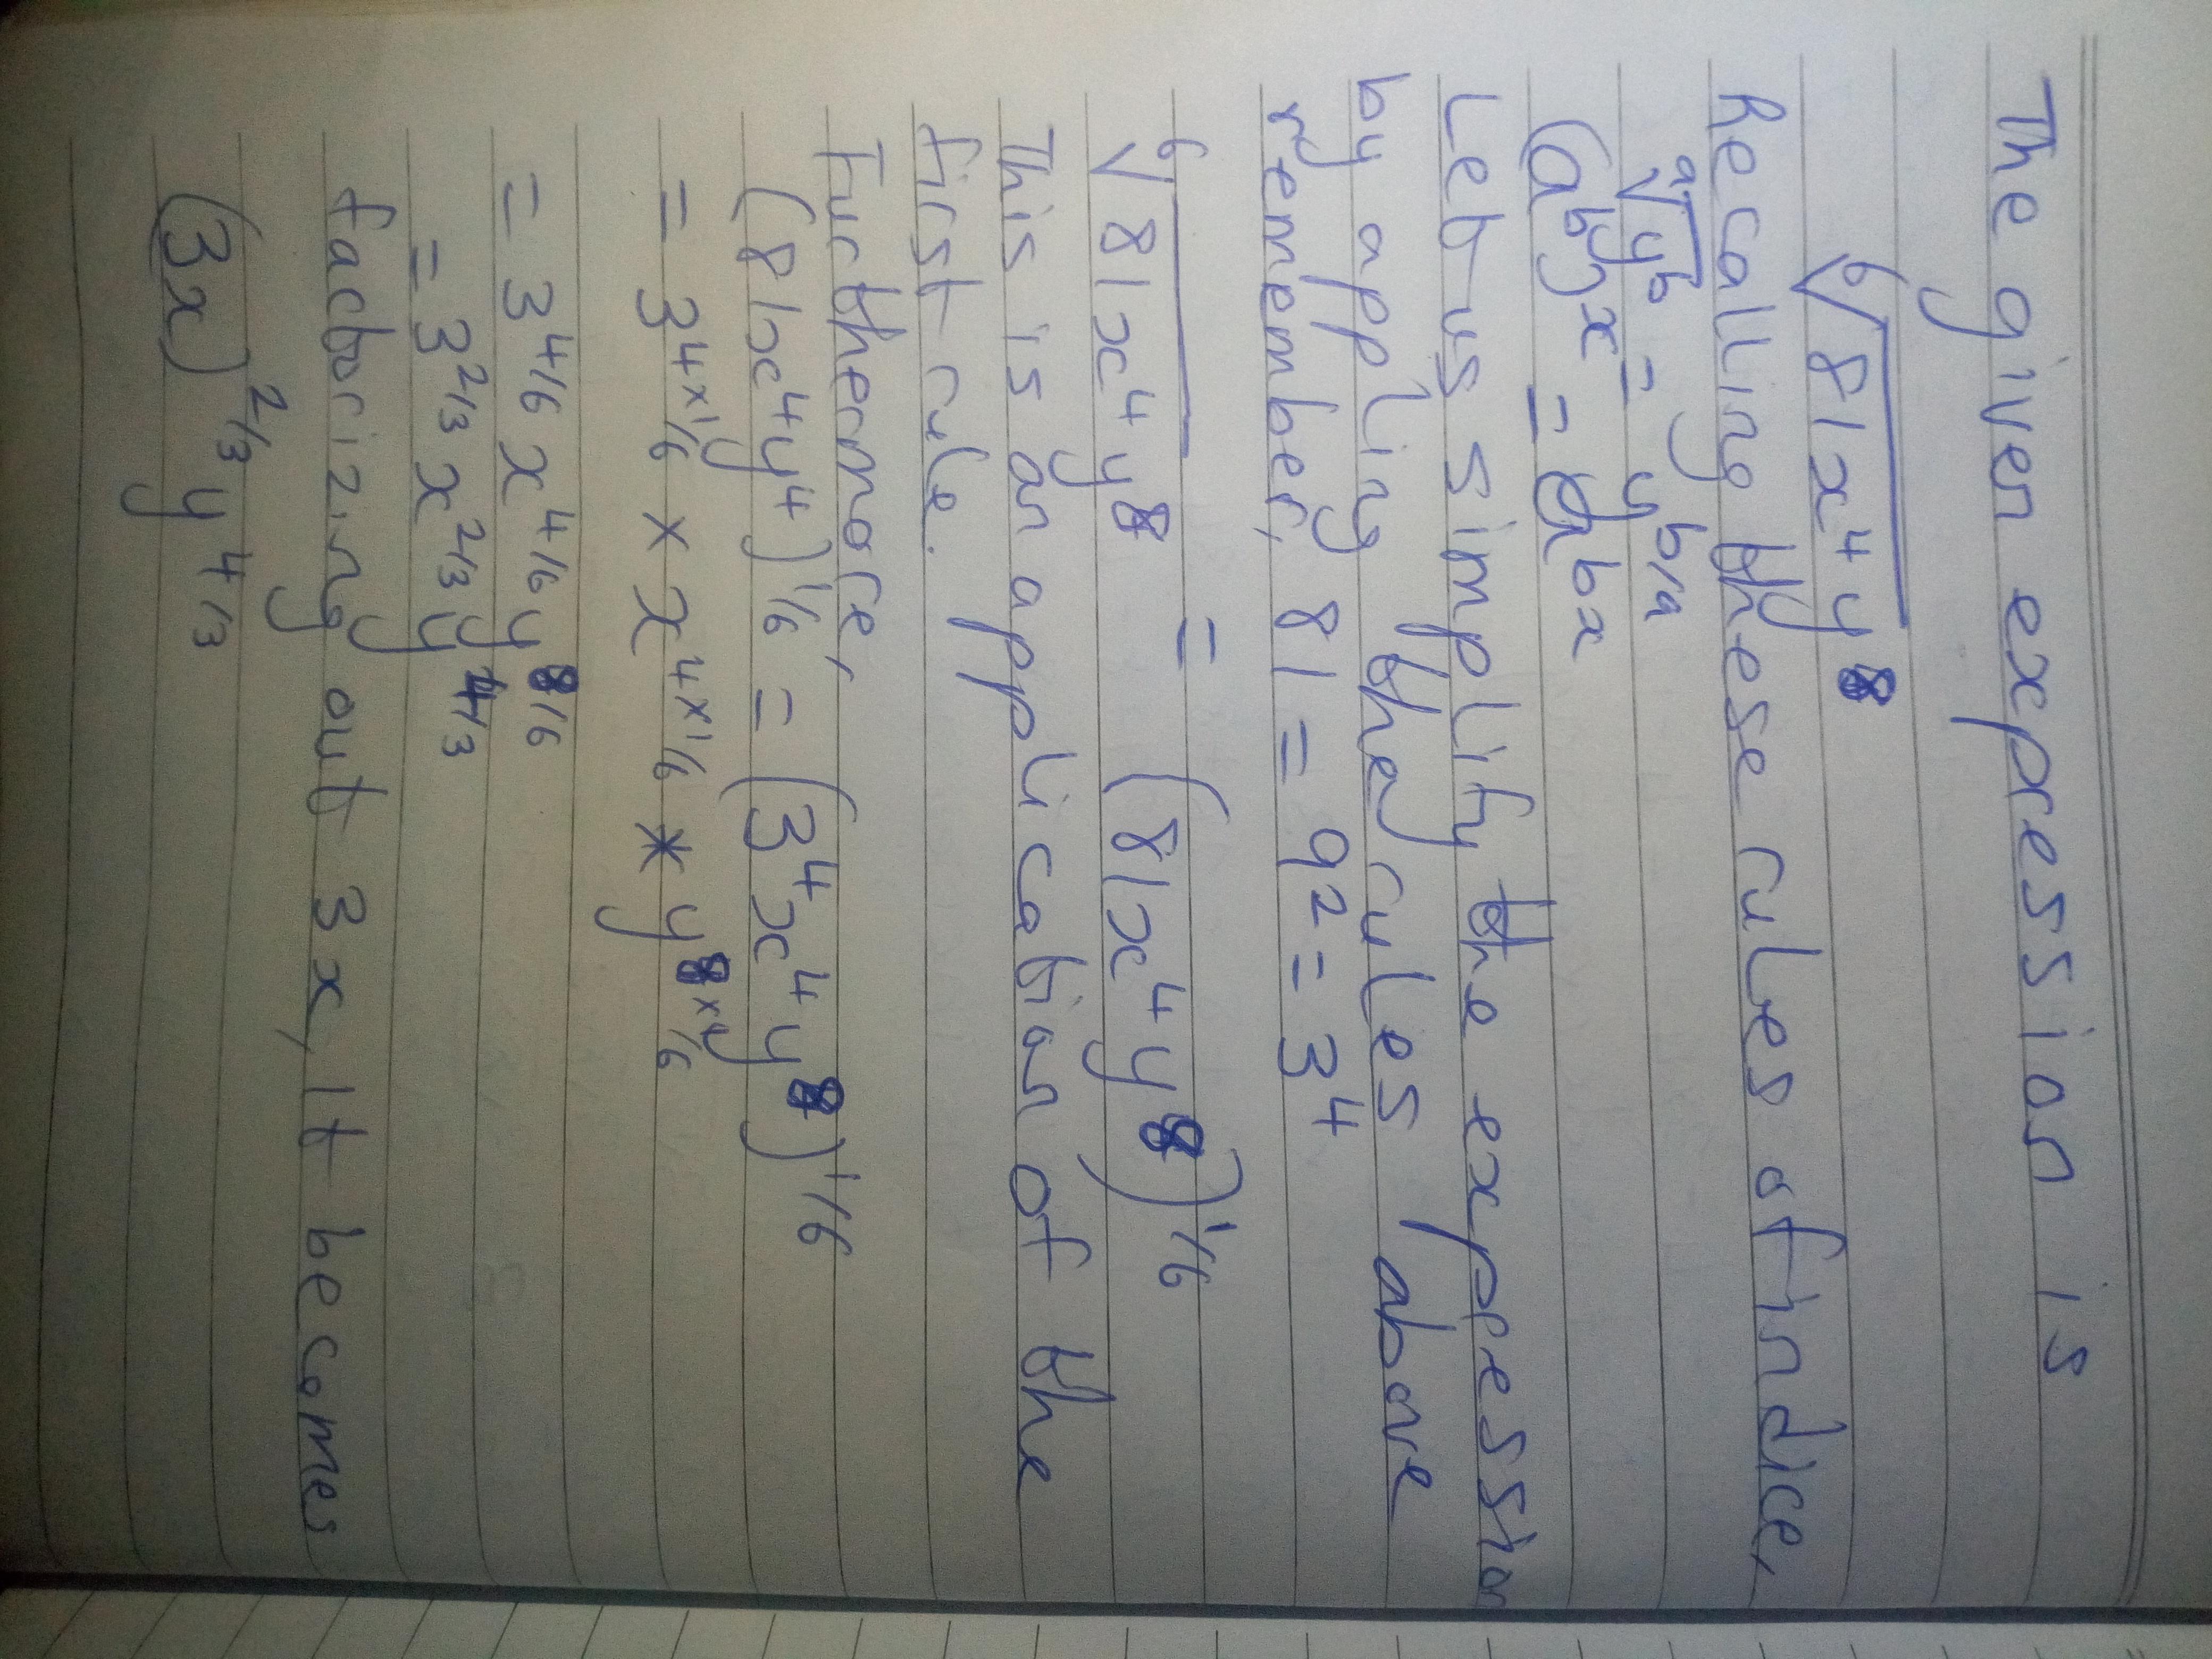 The given expression is
⁶√81x⁴y⁸
Recalling these rules of indice,
ᵃ√yᵇ = y^b/a
(aᵇ)x = a^bx
Let us simplify the expression
by applying the rules above
remember, 81 = 9² = 3⁴
⁶√81x⁴y⁸ = (81x⁴y⁸)^1/6
This is an application of the
first rule.
Furthermore,
(81x⁴y⁴)^1/6 = (3⁴x⁴y⁸)^1/6
= 3^4×1/6 × x^4×1/6 * y^8×1/6
= 3^4/6 x^4/6 y^8/6
= 3^2/3 x^2/3 y^4/3
factorizing out 3x, it becomes
(3x)^2/3 y^4/3